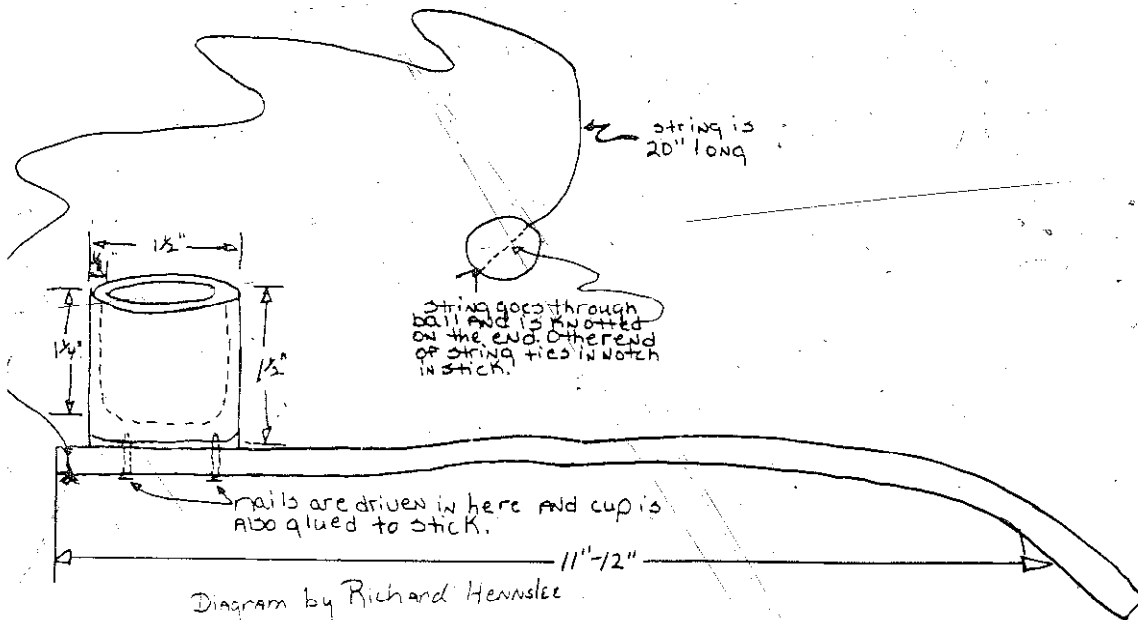 string is
20" long
1½"
1¼"
1½"
string goes through
ball and is knotted
on the end. Other end
of string ties in notch
in stick.
nails are driven in here and cup is
also glued to stick.
11"-12"
Diagram by Richard Hennslee